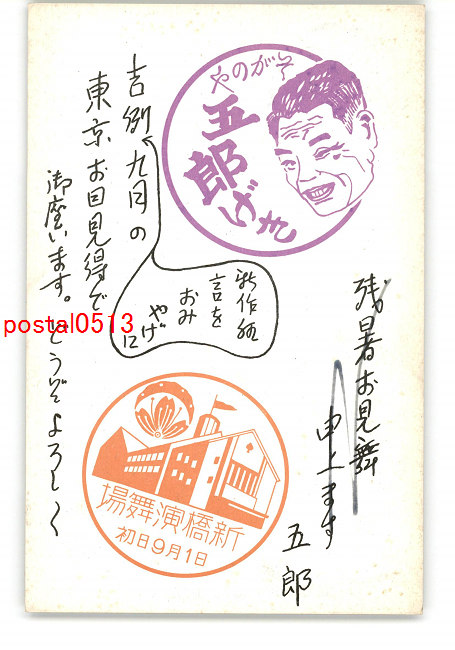 残暑お見舞
申上ます
五郎
そがのや
五郎
げき
吉例九月の
新作狂言を
おみやげに
東京お目見得で
御座います。どうぞよろしく
新橋演舞場
初日9月1日
postal0513